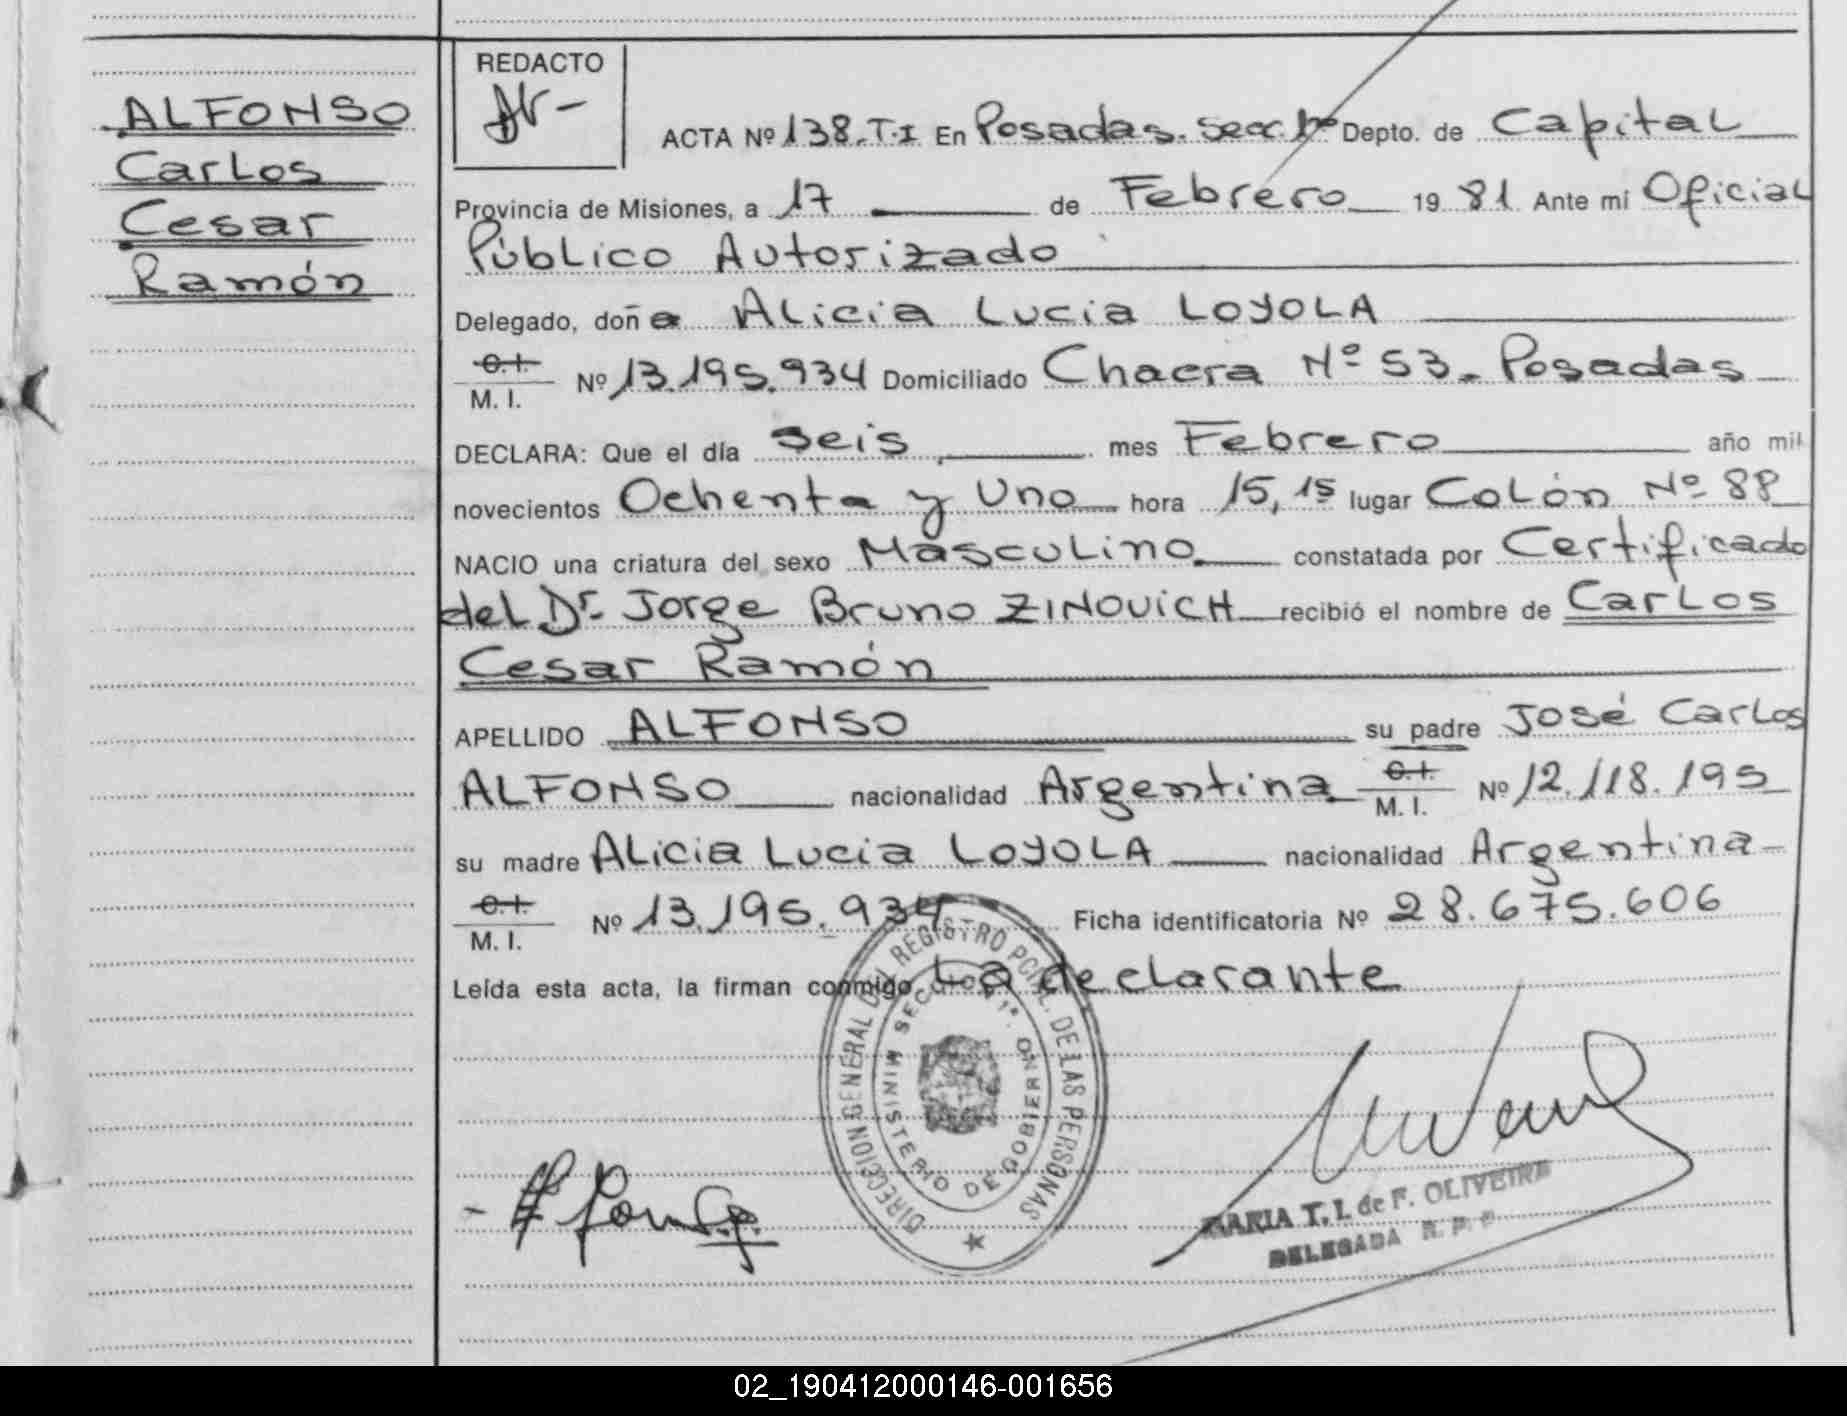 ALFONSO
Carlos
Cesar
Ramón
REDACTO
ACTA Nº 138.T.I En Posadas. Secc. 1ª Depto. de Capital
Provincia de Misiones, a 17 de Febrero 19 81 Ante mí Oficial
Público Autorizado
Delegado, doña Alicia Lucia LOYOLA
C.I.
M. I. Nº 13.195.934 Domiciliado Chacra Nº 53. Posadas
DECLARA: Que el día seis mes Febrero año mil
novecientos Ochenta y Uno hora 15,15 lugar Colón Nº 88
NACIO una criatura del sexo Masculino constatada por Certificado
del Dr. Jorge Bruno ZINOVICH recibió el nombre de Carlos
Cesar Ramón
APELLIDO ALFONSO su padre José Carlos
ALFONSO nacionalidad Argentina C.I. M. I. Nº 12.118.195
su madre Alicia Lucia LOYOLA nacionalidad Argentina
C.I.
M. I. Nº 13.195.934 Ficha identificatoria Nº 28.675.606
Leída esta acta, la firman conmigo La declarante
DIRECCION GENERAL DEL REGISTRO PCIAL. DE LAS PERSONAS
SECCION 1ª.
MINISTERIO DE GOBIERNO
MARIA T. I. de F. OLIVEIRA
DELEGADA R. P. P.
02_190412000146-001656